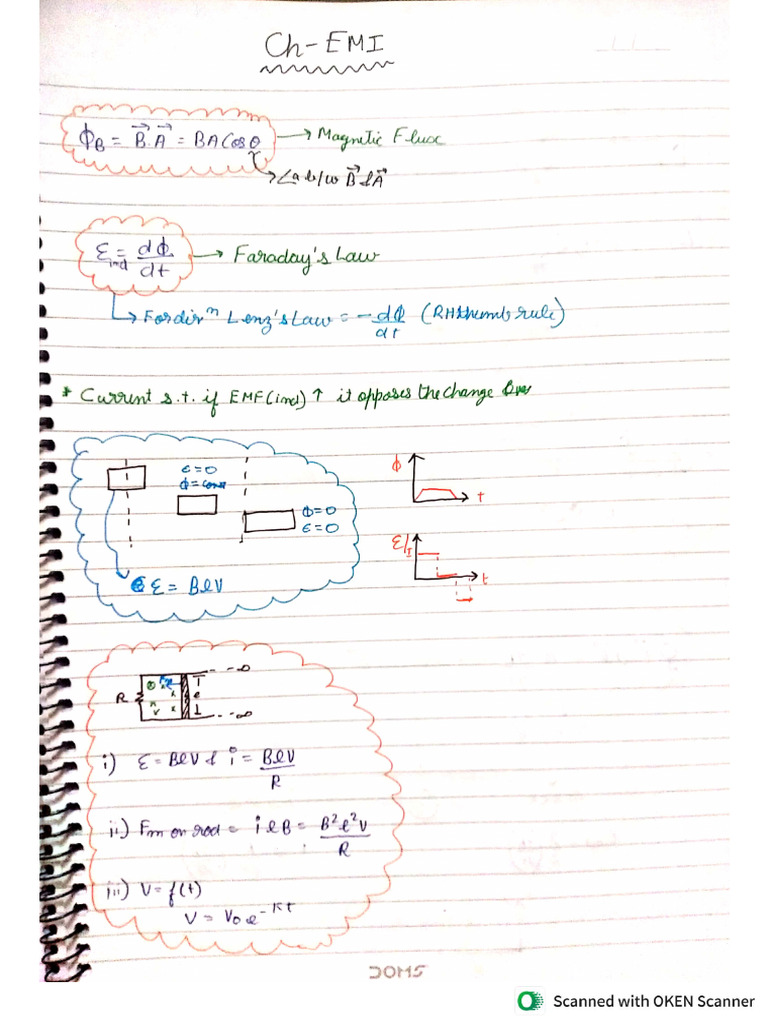 Ch-EMI
ΦB = B⃗.A⃗ = BA Cosθ → Magnetic Flux
→ ∠ab/w B⃗ & A⃗
εind = dΦ/dt → Faraday's Law
↳ For dirⁿ Lenz's Law = -dΦ/dt (RH thumb rule)
* Current s.t. if EMF(ind) ↑ it opposes the change
ε=0
Φ=const
Φ=0
ε=0
ε = Blv
Φ
t
ε/I
t
R
l
--∞
--∞
i) ε = Blv & i = Blv/R
ii) Fm on rod = ilB = B²l²v/R
iii) V = f(t)
V = V₀e^-Kt
DOMS
Scanned with OKEN Scanner